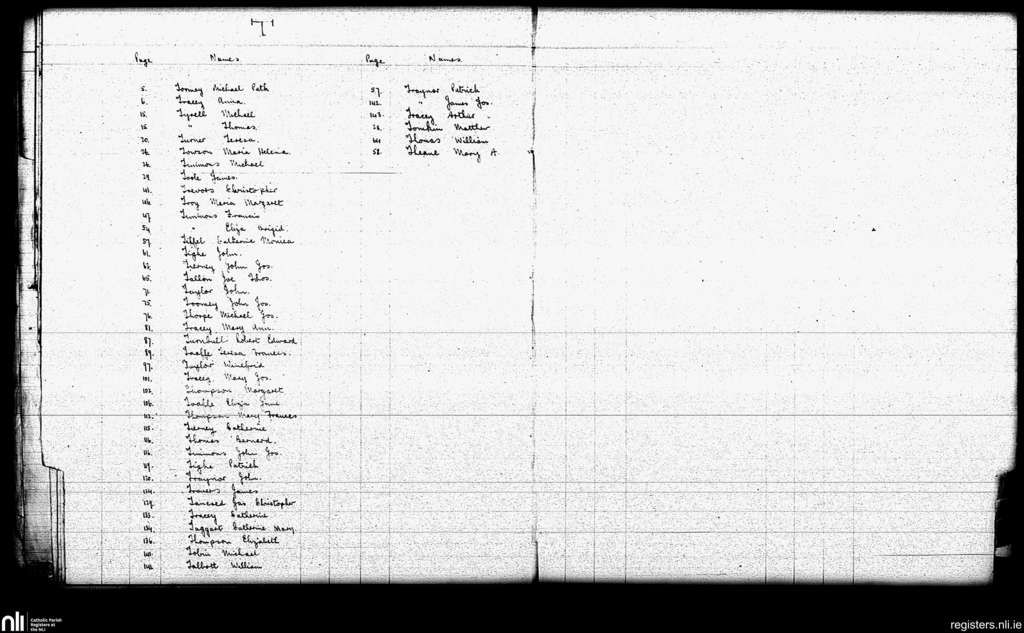 T
Page Names
5. Toomey Michael Path
6. Tracey Anna.
15. Tyrell Michael
15. " Thomas.
20. Turner Teresa.
26. Towson Maria Helena
26. Timmons Michael
29. Toole James.
41. Trevors Christopher
46. Troy Maria Margaret
47. Timmons Francis
54. " Eliza Brigid.
57. Tiffel Catherine Monica
61. Tighe John.
63. Tierney John Jos.
65. Tallon Joe Thos.
71. Taylor John.
75. Toomey John Jos.
76. Thorpe Michael Jos.
81. Tracey Mary Ann.
87. Turnbull Robert Edward
89. Taaffe Teresa Frances.
97. Taylor Winefrid
101. Tracey Mary Jos.
102. Thompson Margaret
106. Eliza Jane
112. Thompson Mary Frances
115. Tierney Catherine
116. Thomas Bernard.
116. Timmons John Jos.
119. Tighe Patrick
120. Traynor John.
124. Travers James
129. Tancred Jas Christopher
133. Tracey Catherine
134. Taggart Catherine Mary
136. Thompson Elizabeth
140. Tobin Michael
141. Talbott William
Page Names
57. Traynor Patrick
142. " James Jos.
143. Tracey Arthur
28. Tomkin Matthew
Thomas William
58. Theane Mary A.
nli Catholic Parish
Registers at
the NLI
registers.nli.ie